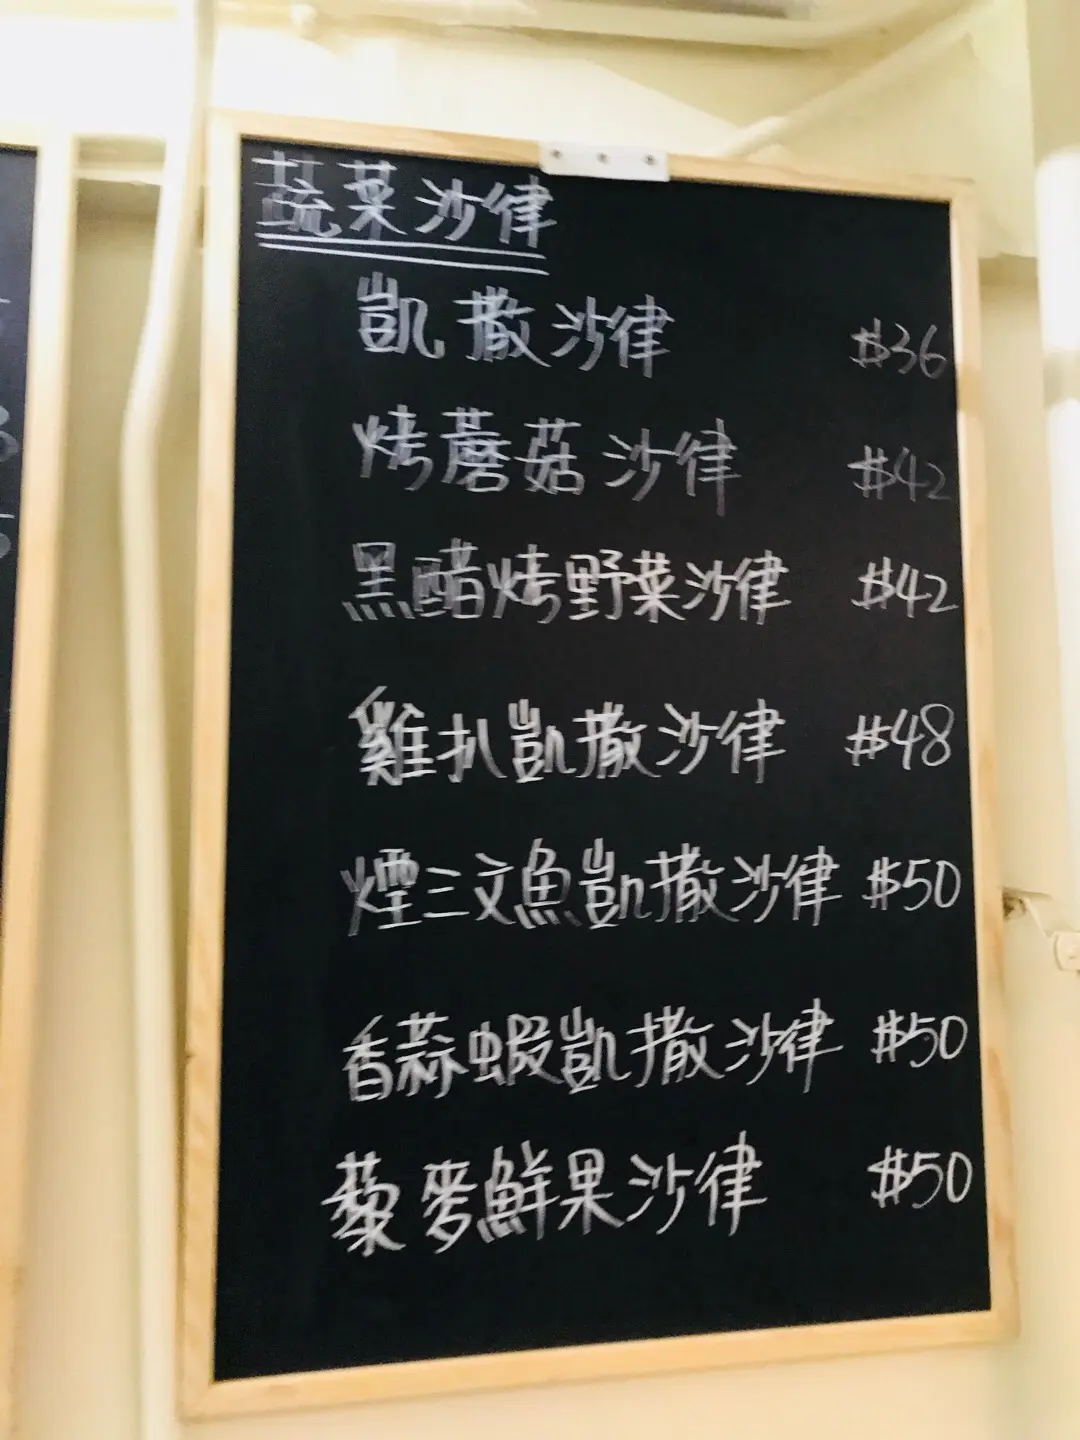 蔬菜沙律
凱撒沙律 $36
烤蘑菇沙律 $42
黑醋烤野菜沙律 $42
雞扒凱撒沙律 $48
煙三文魚凱撒沙律 $50
香蒜蝦凱撒沙律 $50
藜麥鮮果沙律 $50